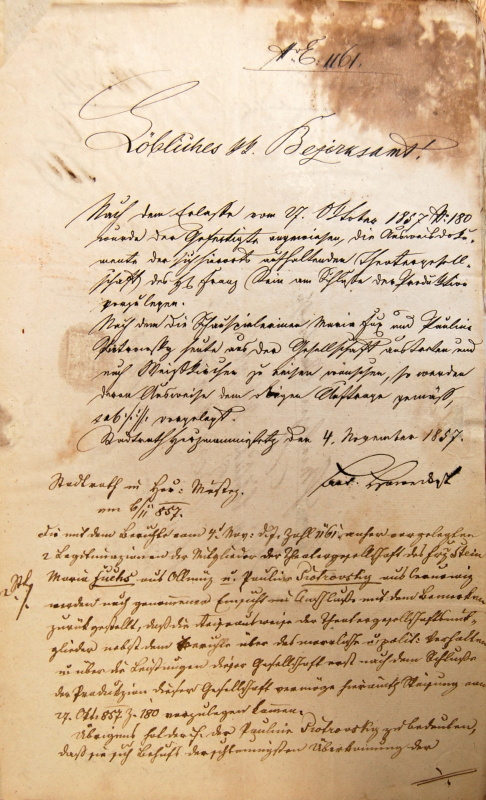 Nr E. 1161.
Löbliches kk. Bezirksamt!
Nach dem Erlasse vom 27. Oktober 1857 N: 180
wurde der Gefertigte angewiesen, die Ausweisdoku-
mente der hierorts aufhaltenden Theatergesell-
schaft des H. Franz Stein am Schlusse der Produktion
vorzulegen.
Nach dem die Schauspielerinen Maria Fux und Pauline
Piotrowsky heute aus der Gesellschaft austreten und
nach Weißkirchen zu reisen wünschen, so werden
deren Ausweise dem obigen Auftrage gemäß,
sub vorgelegt.
Stadtrath Herzmanmistetz den 4. November 1857.
Stadtrath in Her: Mestez.
am 6/11 857.
Die mit dem Berichte vom 4. Nov: d. J. Zahl 1161 anher vorgelegten
2 Legitimazionen der Mitglieder der Theatergesellschaft des Franz Stein
Maria Fuchs aus Ollmüz u. Pauline Piotrovsky aus
werden nach genommener Einsicht im Anschluße mit dem Bemerken
zurückgestellt, daß die der Theatergesellschaftsmit-
glieder nebst dem Berichte über das moralische u. polit: Verhalten
u. über die Leistungen dieser Gesellschaft erst nach dem Schluße
der Produkzion dieser Gesellschaft vermöge hierämtl. Weisung vom
27. Okt. 857 Z. 180 vorzulegen kommen.
Übrigens ist der Pauline Piotrovsky zu bedeuten,
daß sie sich Behufs der der